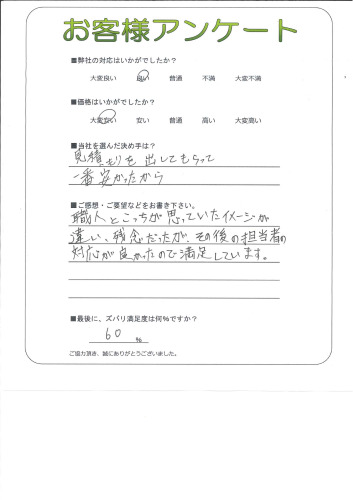 お客様アンケート
■弊社の対応はいかがでしたか？
大変良い 良い 普通 不満 大変不満
■価格はいかがでしたか？
大変安い 安い 普通 高い 大変高い
■当社を選んだ決め手は？
見積もりを出してもらって
一番安かったから
■ご感想・ご要望などをお書き下さい。
職人とこっちが思っていたイメージが
違い、残念だったが、その後の担当者の
対応が良かったので満足しています。
■最後に、ズバリ満足度は何％ですか？
60 %
ご協力頂き、誠にありがとうございました。